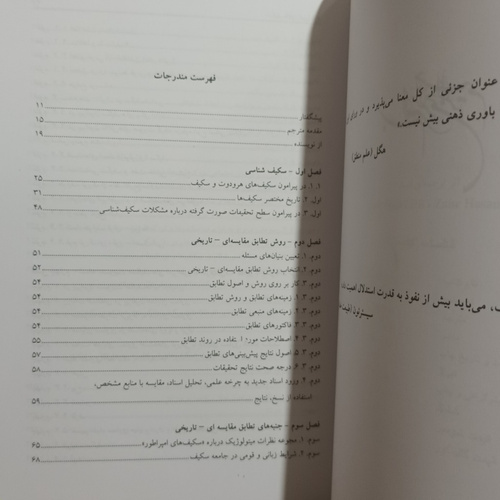 فهرست مندرجات
پیشگفتار ۱۱
مقدمه مترجم ۱۵
از نویسنده ۱۹
فصل اول - سکیف شناسی
۱.۱. در پیرامون سکیف‌های هرودوت و سکیف ۲۵
اول. ۲. تاریخ مختصر سکیف‌ها ۳۱
اول. ۳. در پیرامون سطح تحقیقات صورت گرفته درباره مشکلات سکیف‌شناسی ۴۸
فصل دوم - روش تطابق مقایسه‌ای - تاریخی
دوم. ۱. تعیین بنیان‌های مسئله ۵۱
دوم. ۲. انتخاب روش تطابق مقایسه‌ای - تاریخی ۵۲
دوم. ۳. کار بر روی روش و اصول تطابق ۵۴
دوم. ۳. ۱. زمینه‌های تطابق و روش تطابق ۵۴
دوم. ۳. ۲. زمینه‌های منبعی تطابق ۵۴
دوم. ۳. ۳. فاکتورهای تطابق ۵۴
دوم. ۳. ۴. اصطلاحات مورد استفاده در روند تطابق ۵۵
دوم. ۳. ۵. اصول نتایج پیش‌بینی‌های تطابق ۵۷
دوم. ۳. ۶. درجه صحت نتایج تحقیقات ۵۸
دوم. ۴. ورود اسناد جدید به چرخه علمی، تحلیل اسناد، مقایسه با منابع مشخص،
استفاده از نسخ، نتایج ۵۹
فصل سوم - جنبه‌های تطابق مقایسه ای - تاریخی
سوم. ۱. مجموعه نظرات میتولوژیک درباره «سکیف‌های امپراطور» ۶۵
سوم. ۲. شرایط زبانی و قومی در جامعه سکیف ۶۸
عنوان جزئی از کل معنا می‌پذیرد و در ورای
باوری ذهنی بیش نیست.»
هگل (علم منطق)
می‌باید بیش از نفوذ به قدرت استدلال اهمیت